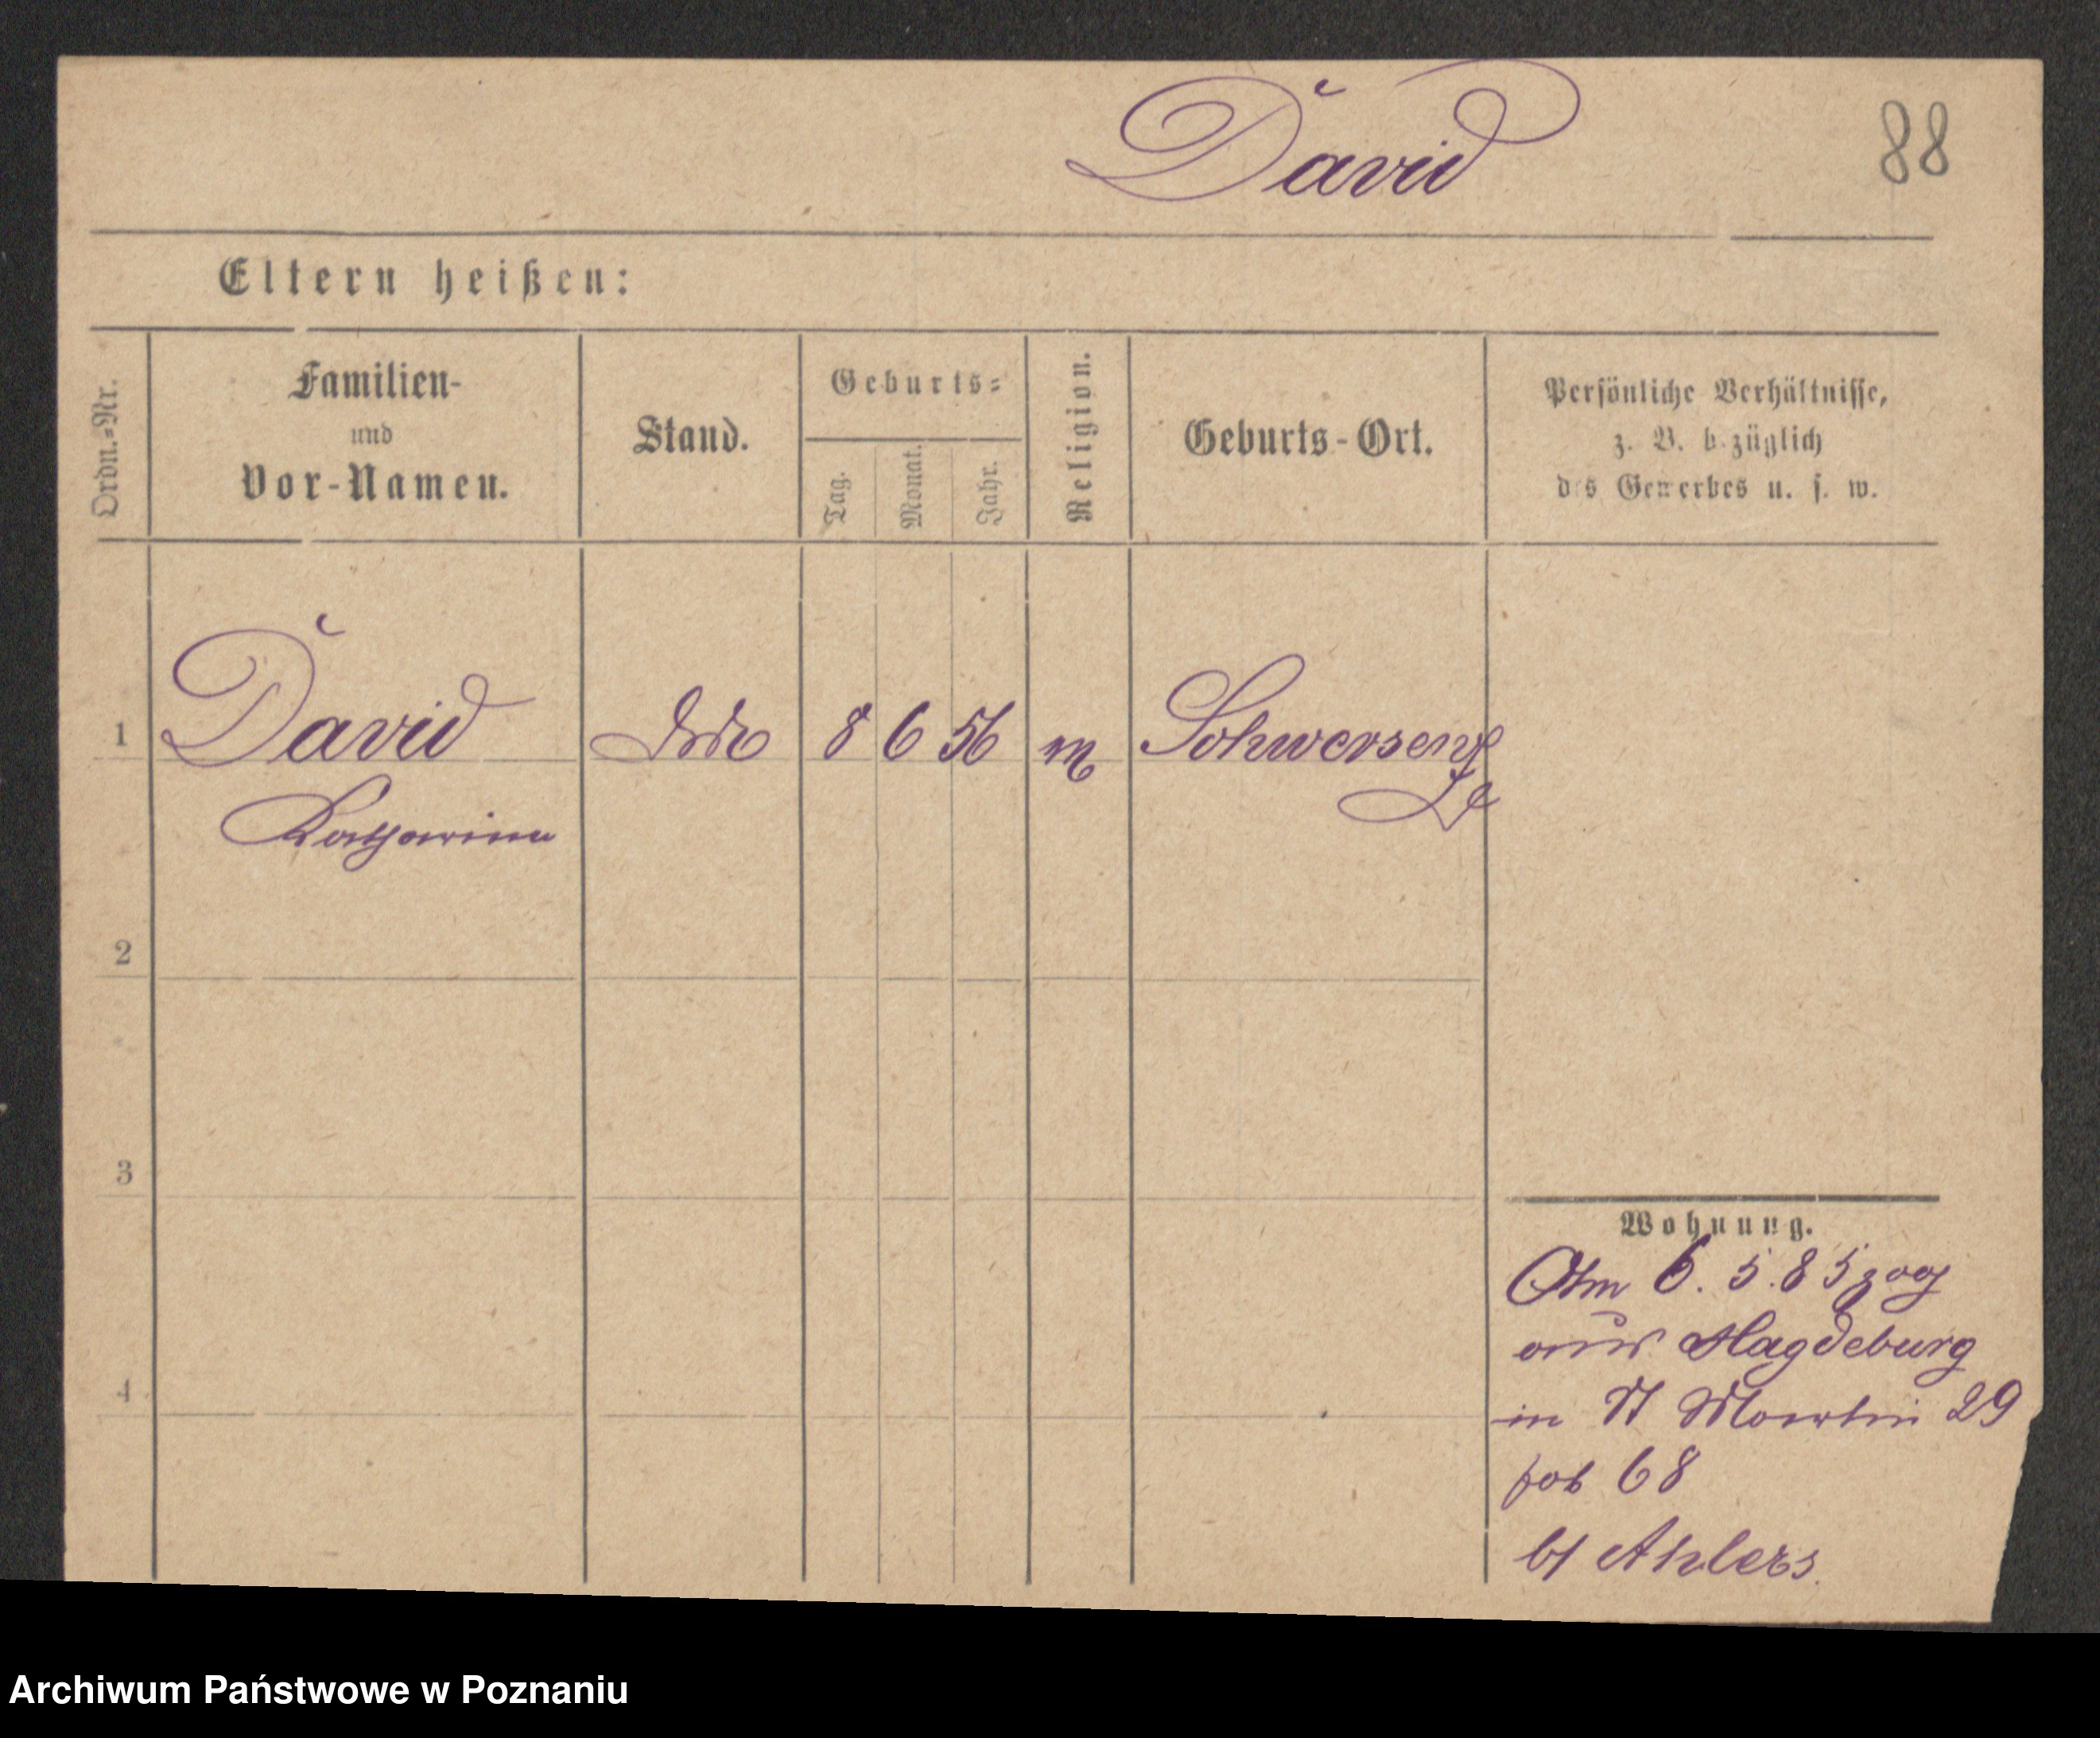 David
88
Eltern heißen:
Ordn.=Nr.
Familien-
und
Vor-Namen.
Stand.
Geburts=
Tag.
Monat.
Jahr.
Religion.
Geburts-Ort.
Persönliche Verhältnisse,
z. B. bezüglich
des Gewerbes u. s. w.
1 David 8 6 56 Schwersenz
Katharina
2
3
4
Wohnung.
Am 6. 5. 85 zog
aus Magdeburg
in St Martin 29
68
Ahlers
Archiwum Państwowe w Poznaniu